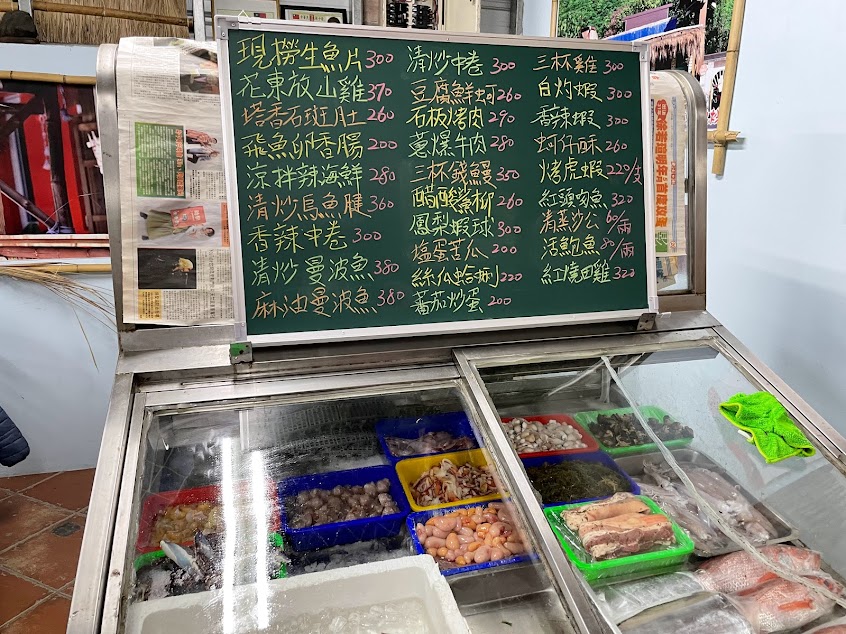 現撈生魚片300
花東放山雞370
塔香石斑月土260
飛魚卵香腸200
涼拌辣海鮮280
清炒烏魚腱360
香辣中卷300
清炒曼波魚380
麻油曼波魚380
清炒中卷300
豆腐鮮蚵260
石板烤肉290
蔥爆牛肉280
三杯錢鰻350
醋酸鯊柳260
鳳梨蝦球300
塩蛋苦瓜200
絲瓜蛤蜊220
蕃茄炒蛋200
三杯雞300
白灼蝦300
香辣蝦300
蚵仔酥260
烤虎蝦220/支
紅頭肉魚320
清蒸沙公60/兩
活鮑魚80/兩
紅燒田雞320